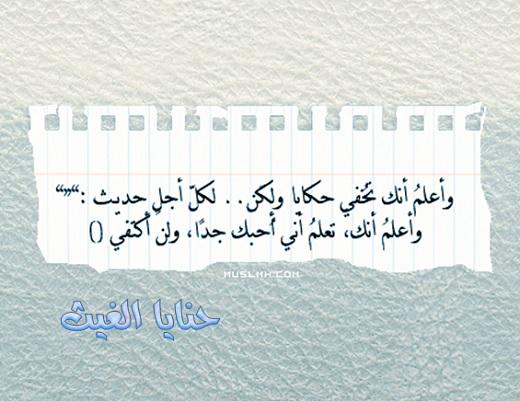 وأعلمُ أنك تُخفي حكايا ولكن.. لكلّ أجلٍ حديث :““”
وأعلمُ أنك، تعلمُ أنّي أحبك جدًا، ولن أكتفي ()
MUSLMH.COM
حنايا الغيث